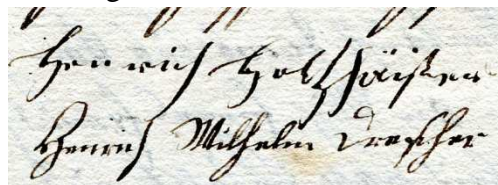 Henrich Holzhäißer
Henrich Wilhelm Drescher